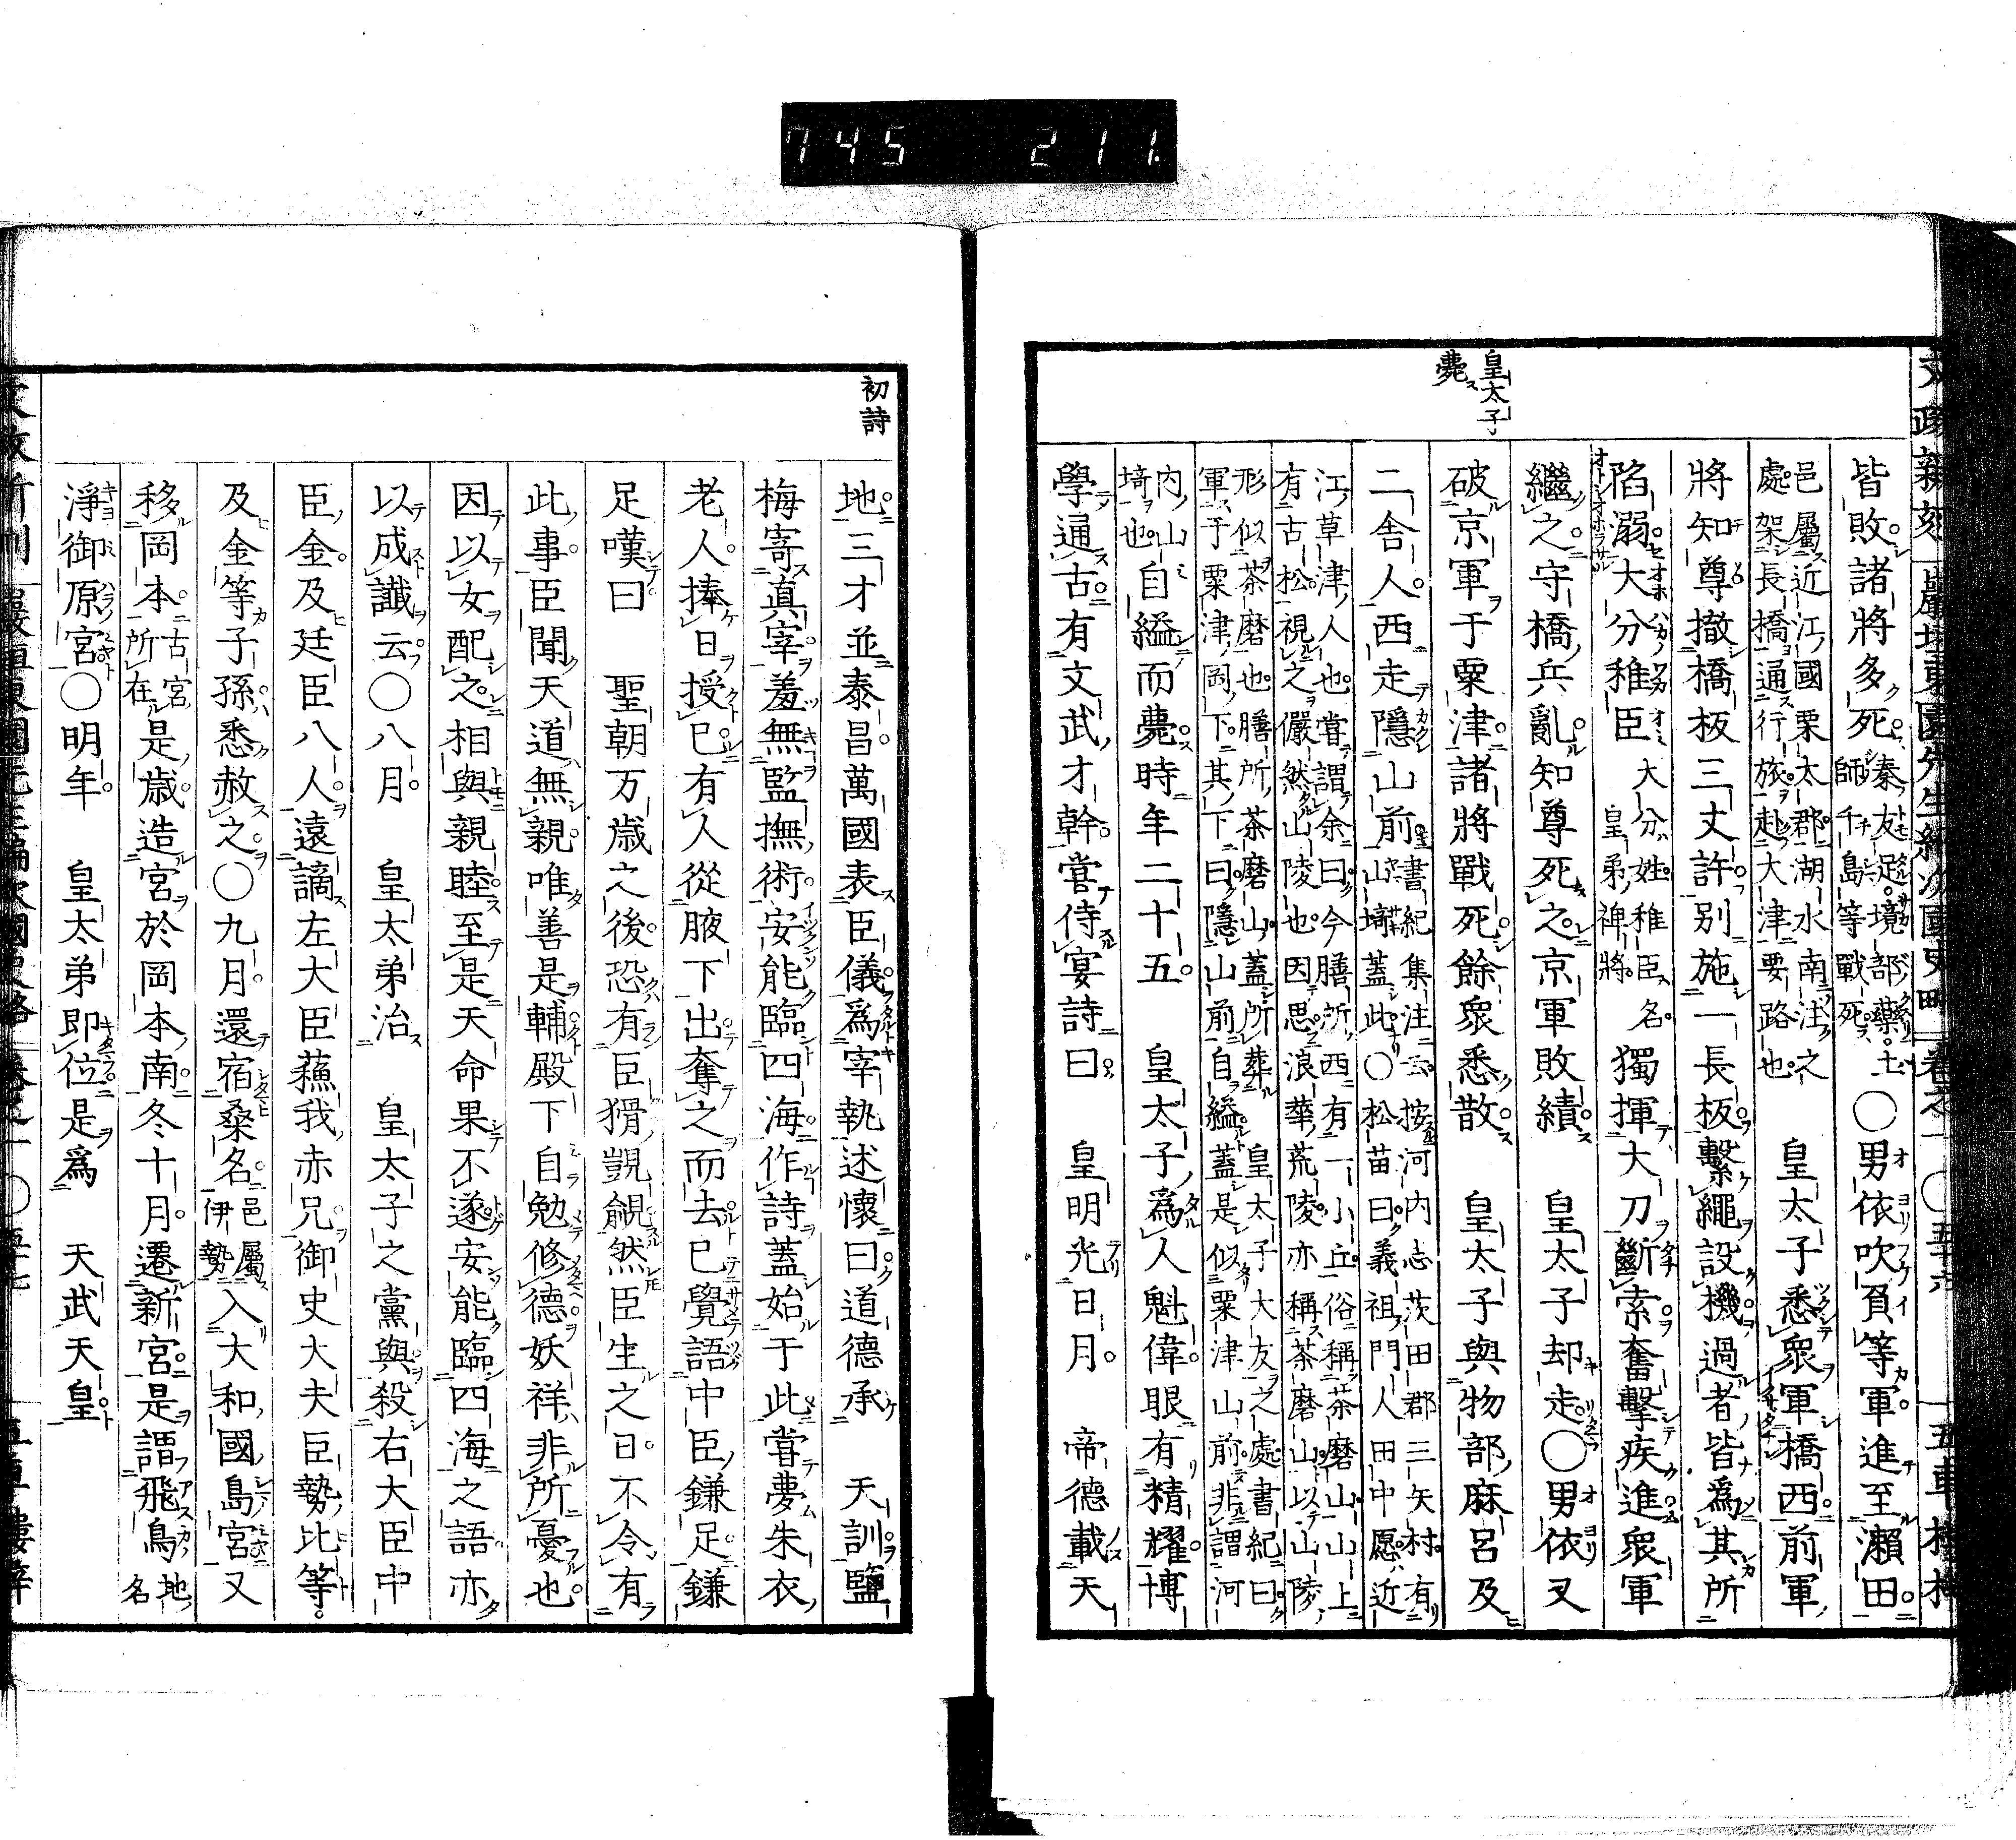 745 211.
皇太子
薨
皆敗諸將多死秦友足境部藥土
師千島等戰死〇男依吹負等軍進至瀨田
邑屬近江國栗太郡湖水南注之
處架長橋通行旅赴大津要路也皇太子悉衆軍橋西前軍
將知尊撤橋板三丈許別施一長板繫繩設機過者皆爲其所
陷溺大分稚臣大分姓稚臣名
皇弟裨將獨揮大刀斷索奮擊疾進衆軍
繼之守橋兵亂知尊死之京軍敗績皇太子却走〇男依又
破京軍于粟津諸將戰死餘衆悉散皇太子與物部麻呂及
二舍人西走隱山前書紀集注云按河內志茨田郡三矢村有
山埼蓋此〇松苗曰義祖門人田中愿近
江草津人也嘗謂余曰今膳所西有一小丘俗稱茶磨山山上
有古松視之儼然山陵也因思浪華荒陵亦稱茶磨山以山陵
形似茶磨也膳所茶磨山蓋所葬皇太子大友之處書紀曰
軍于粟津岡下其下曰隱山前自縊蓋是似粟津山前非謂河
內山
埼也自縊而薨時年二十五皇太子爲人魁偉眼有精耀博
學通古有文武才幹嘗侍宴詩曰皇明光日月帝德載天
初詩
地三才並泰昌萬國表臣儀爲宰執述懷曰道德承天訓鹽
梅寄真宰羞無監撫術安能臨四海作詩蓋始于此嘗夢朱衣
老人捧日授已有人從腋下出奪之而去已覺語中臣鎌足鎌
足嘆曰聖朝万歲之後恐有臣猾覬覦然臣生之日不令有
此事臣聞天道無親唯善是輔殿下自勉修德妖祥非所憂也
因以女配之相與親睦至是天命果不遂安能臨四海之語亦
以成讖云〇八月皇太弟治皇太子之黨與殺右大臣中
臣金及廷臣八人遠謫左大臣蘓我赤兄御史大夫臣勢比等
及金等子孫悉赦之〇九月還宿桑名邑屬
伊勢入大和國島宮又
移岡本古宮
所在是歲造宮於岡本南冬十月遷新宮是謂飛鳥地
名
淨御原宮〇明年皇太弟即位是爲天武天皇